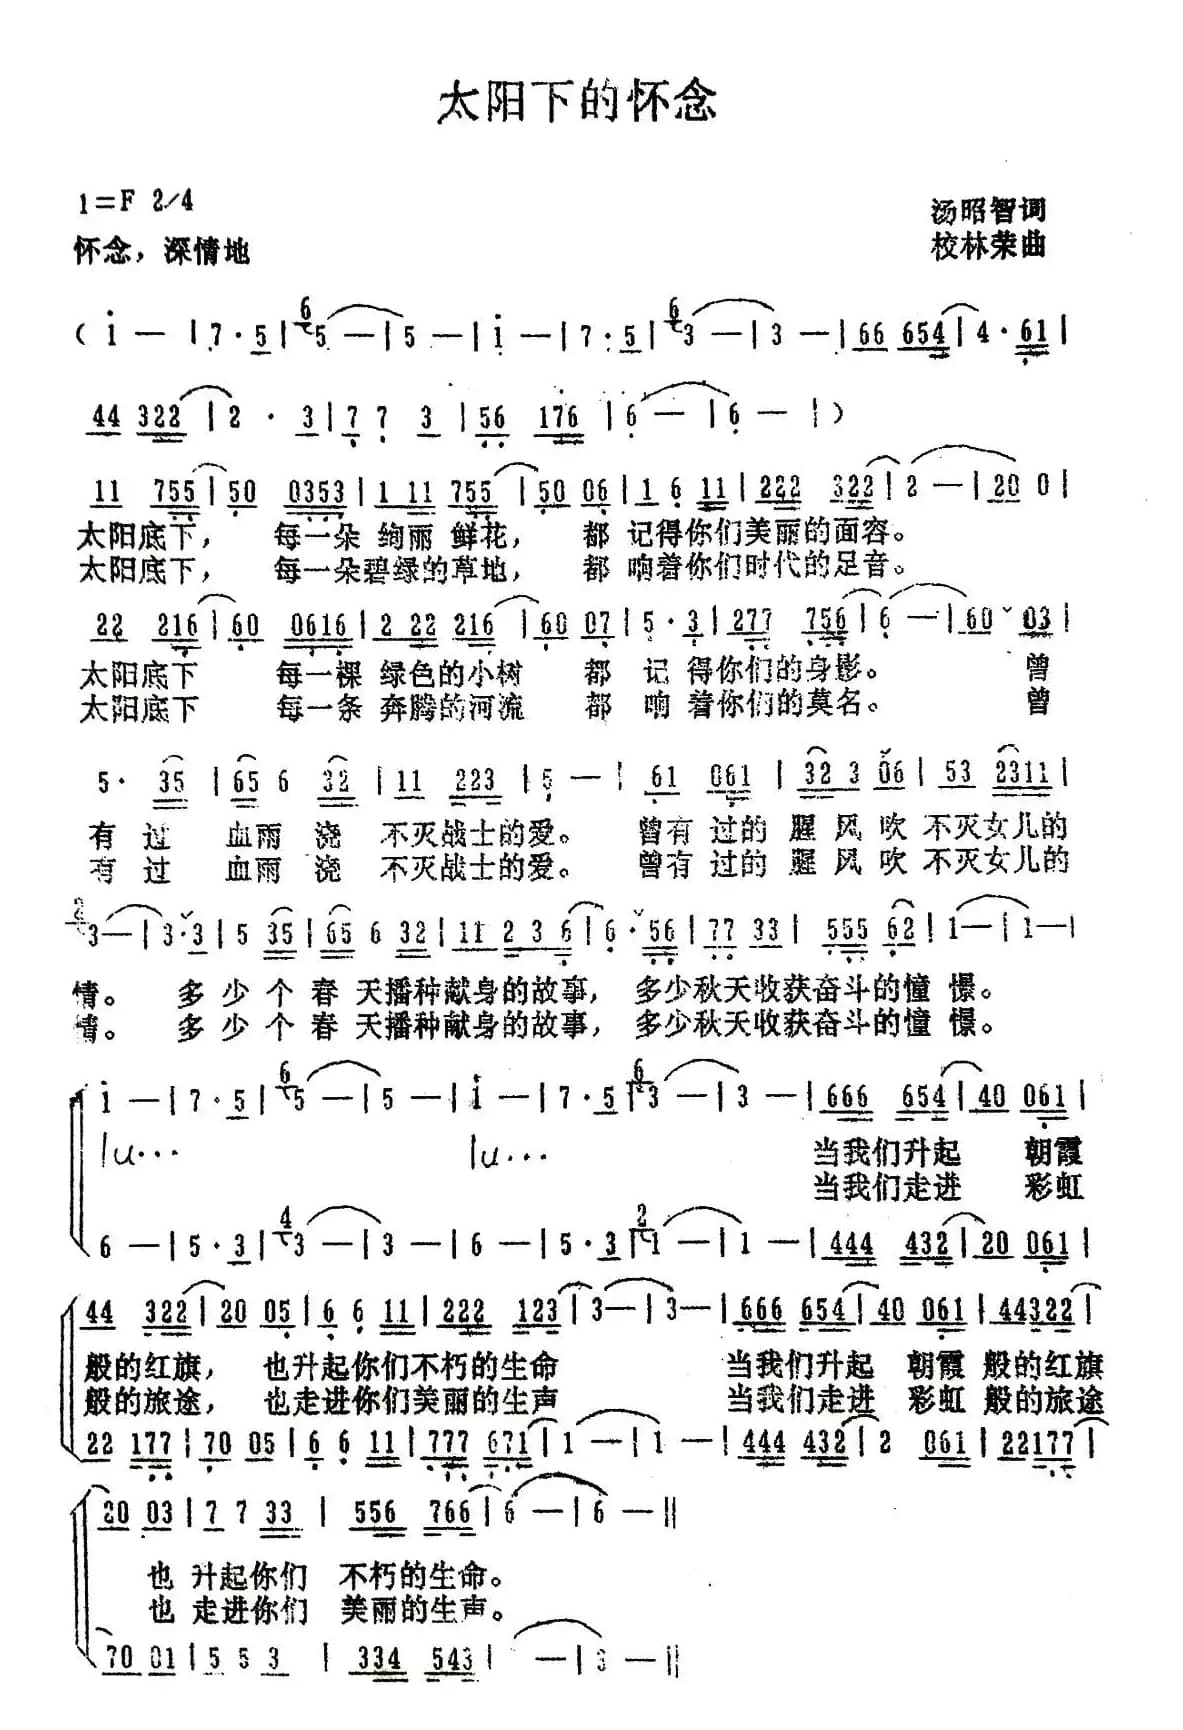 太阳下的怀念
1=F 2/4
汤昭智词
怀念，深情地
校林荣曲
( i — | 7 · 5 | 6 5 — | 5 — | i — | 7 · 5 | 6 3 — | 3 — | 66 654 | 4 · 61 |
44 322 | 2 · 3 | 7 7 3 | 56 176 | 6 — | 6 — | )
11 755 | 50 0353 | 1 11 755 | 50 06 | 1 6 11 | 222 322 | 2 — | 20 0 |
太阳底下， 每一朵 绚丽 鲜花， 都 记得你们美丽的面容。
太阳底下， 每一朵碧绿的草地， 都 响着你们时代的足音。
22 216 | 60 0616 | 2 22 216 | 60 07 | 5 · 3 | 277 756 | 6 — | 60 03 |
太阳底下 每一棵 绿色的小树 都 记 得你们的身影。 曾
太阳底下 每一条 奔腾的河流 都 响 着你们的莫名。 曾
5 · 35 | 65 6 32 | 11 223 | 5 — | 61 061 | 32 3 06 | 53 2311 |
有 过 血雨 浇 不灭战士的爱。 曾有 过的 腥 风 吹 不灭女儿的
有 过 血雨 浇 不灭战士的爱。 曾有 过的 腥 风 吹 不灭女儿的
2 3 — | 3 · 3 | 5 35 | 65 6 32 | 11 2 3 6 | 6 · 56 | 77 33 | 555 62 | 1 — | 1 — |
情。 多 少 个 春 天播种献身的故事， 多少秋天收获奋斗的憧 憬。
情。 多 少 个 春 天播种献身的故事， 多少秋天收获奋斗的憧 憬。
i — | 7 · 5 | 6 5 — | 5 — | i — | 7 · 5 | 6 3 — | 3 — | 666 654 | 40 061 |
lu... lu... 当我们升起 朝霞
当我们走进 彩虹
6 — | 5 · 3 | 4 3 — | 3 — | 6 — | 5 · 3 | 2 1 — | 1 — | 444 432 | 20 061 |
44 322 | 20 05 | 6 6 11 | 222 123 | 3 — | 3 — | 666 654 | 40 061 | 44322 |
般的红旗， 也升起你们不朽的生命 当我们升起 朝霞 般的红旗
般的旅途， 也走进你们美丽的生声 当我们走进 彩虹 般的旅途
22 177 | 70 05 | 6 6 11 | 777 671 | 1 — | 1 — | 444 432 | 2 061 | 22177 |
20 03 | 7 7 33 | 556 766 | 6 — | 6 — ||
也 升起你们 不朽的生命。
也 走进你们 美丽的生声。
70 01 | 5 5 3 | 334 543 | 3 — | 3 — ||